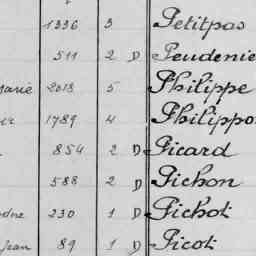 1336 3 Petitpas
511 2 D Peudenie
Marie 2018 5 Philippe
1789 4 Philippo
854 2 D Picard
588 2 D Pichon
230 1 D Pichot
Jean 89 1 D Picot